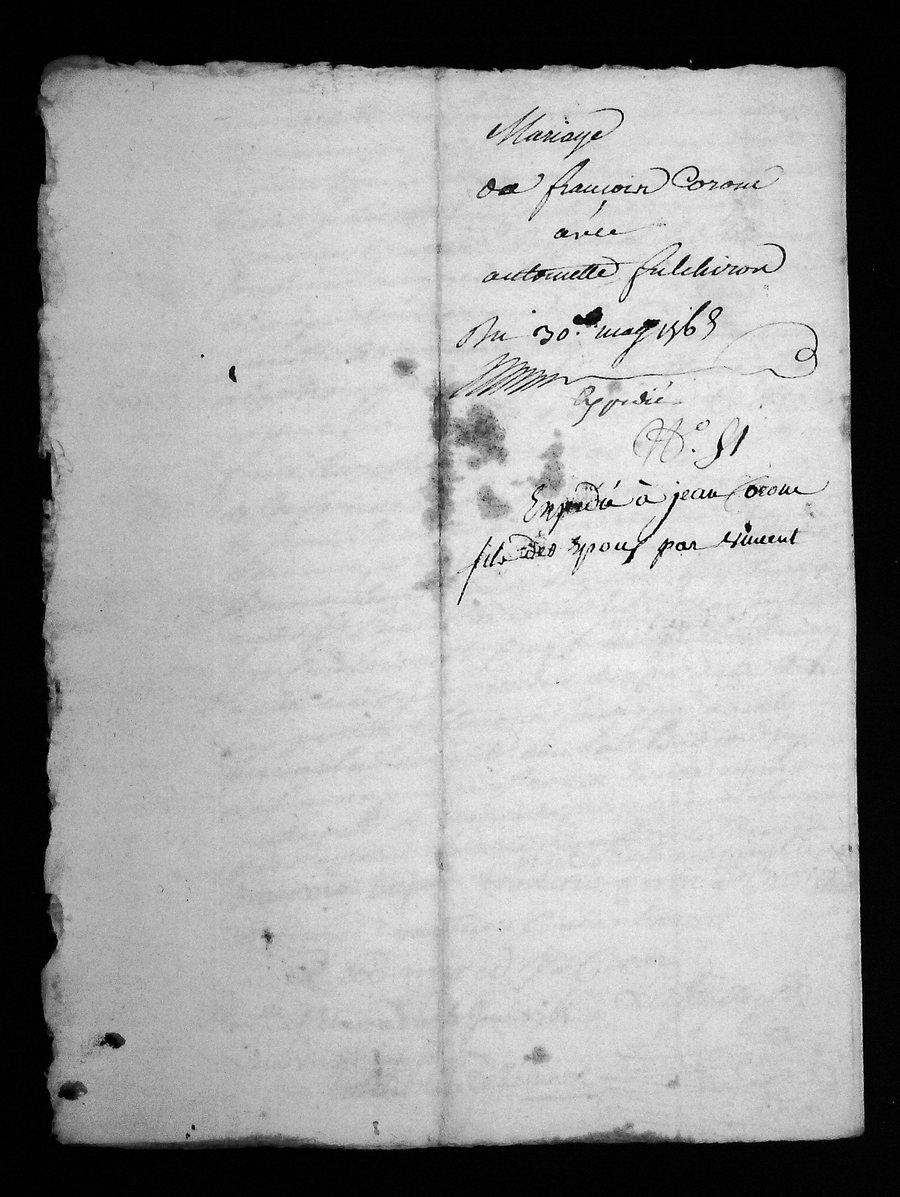 Mariage
de françois Coronc
avec
antoinette fulchiron
Du 30e may 1768
Expedié
No. 51
Expedié à jean Coronc
fils des Epoux par vincent